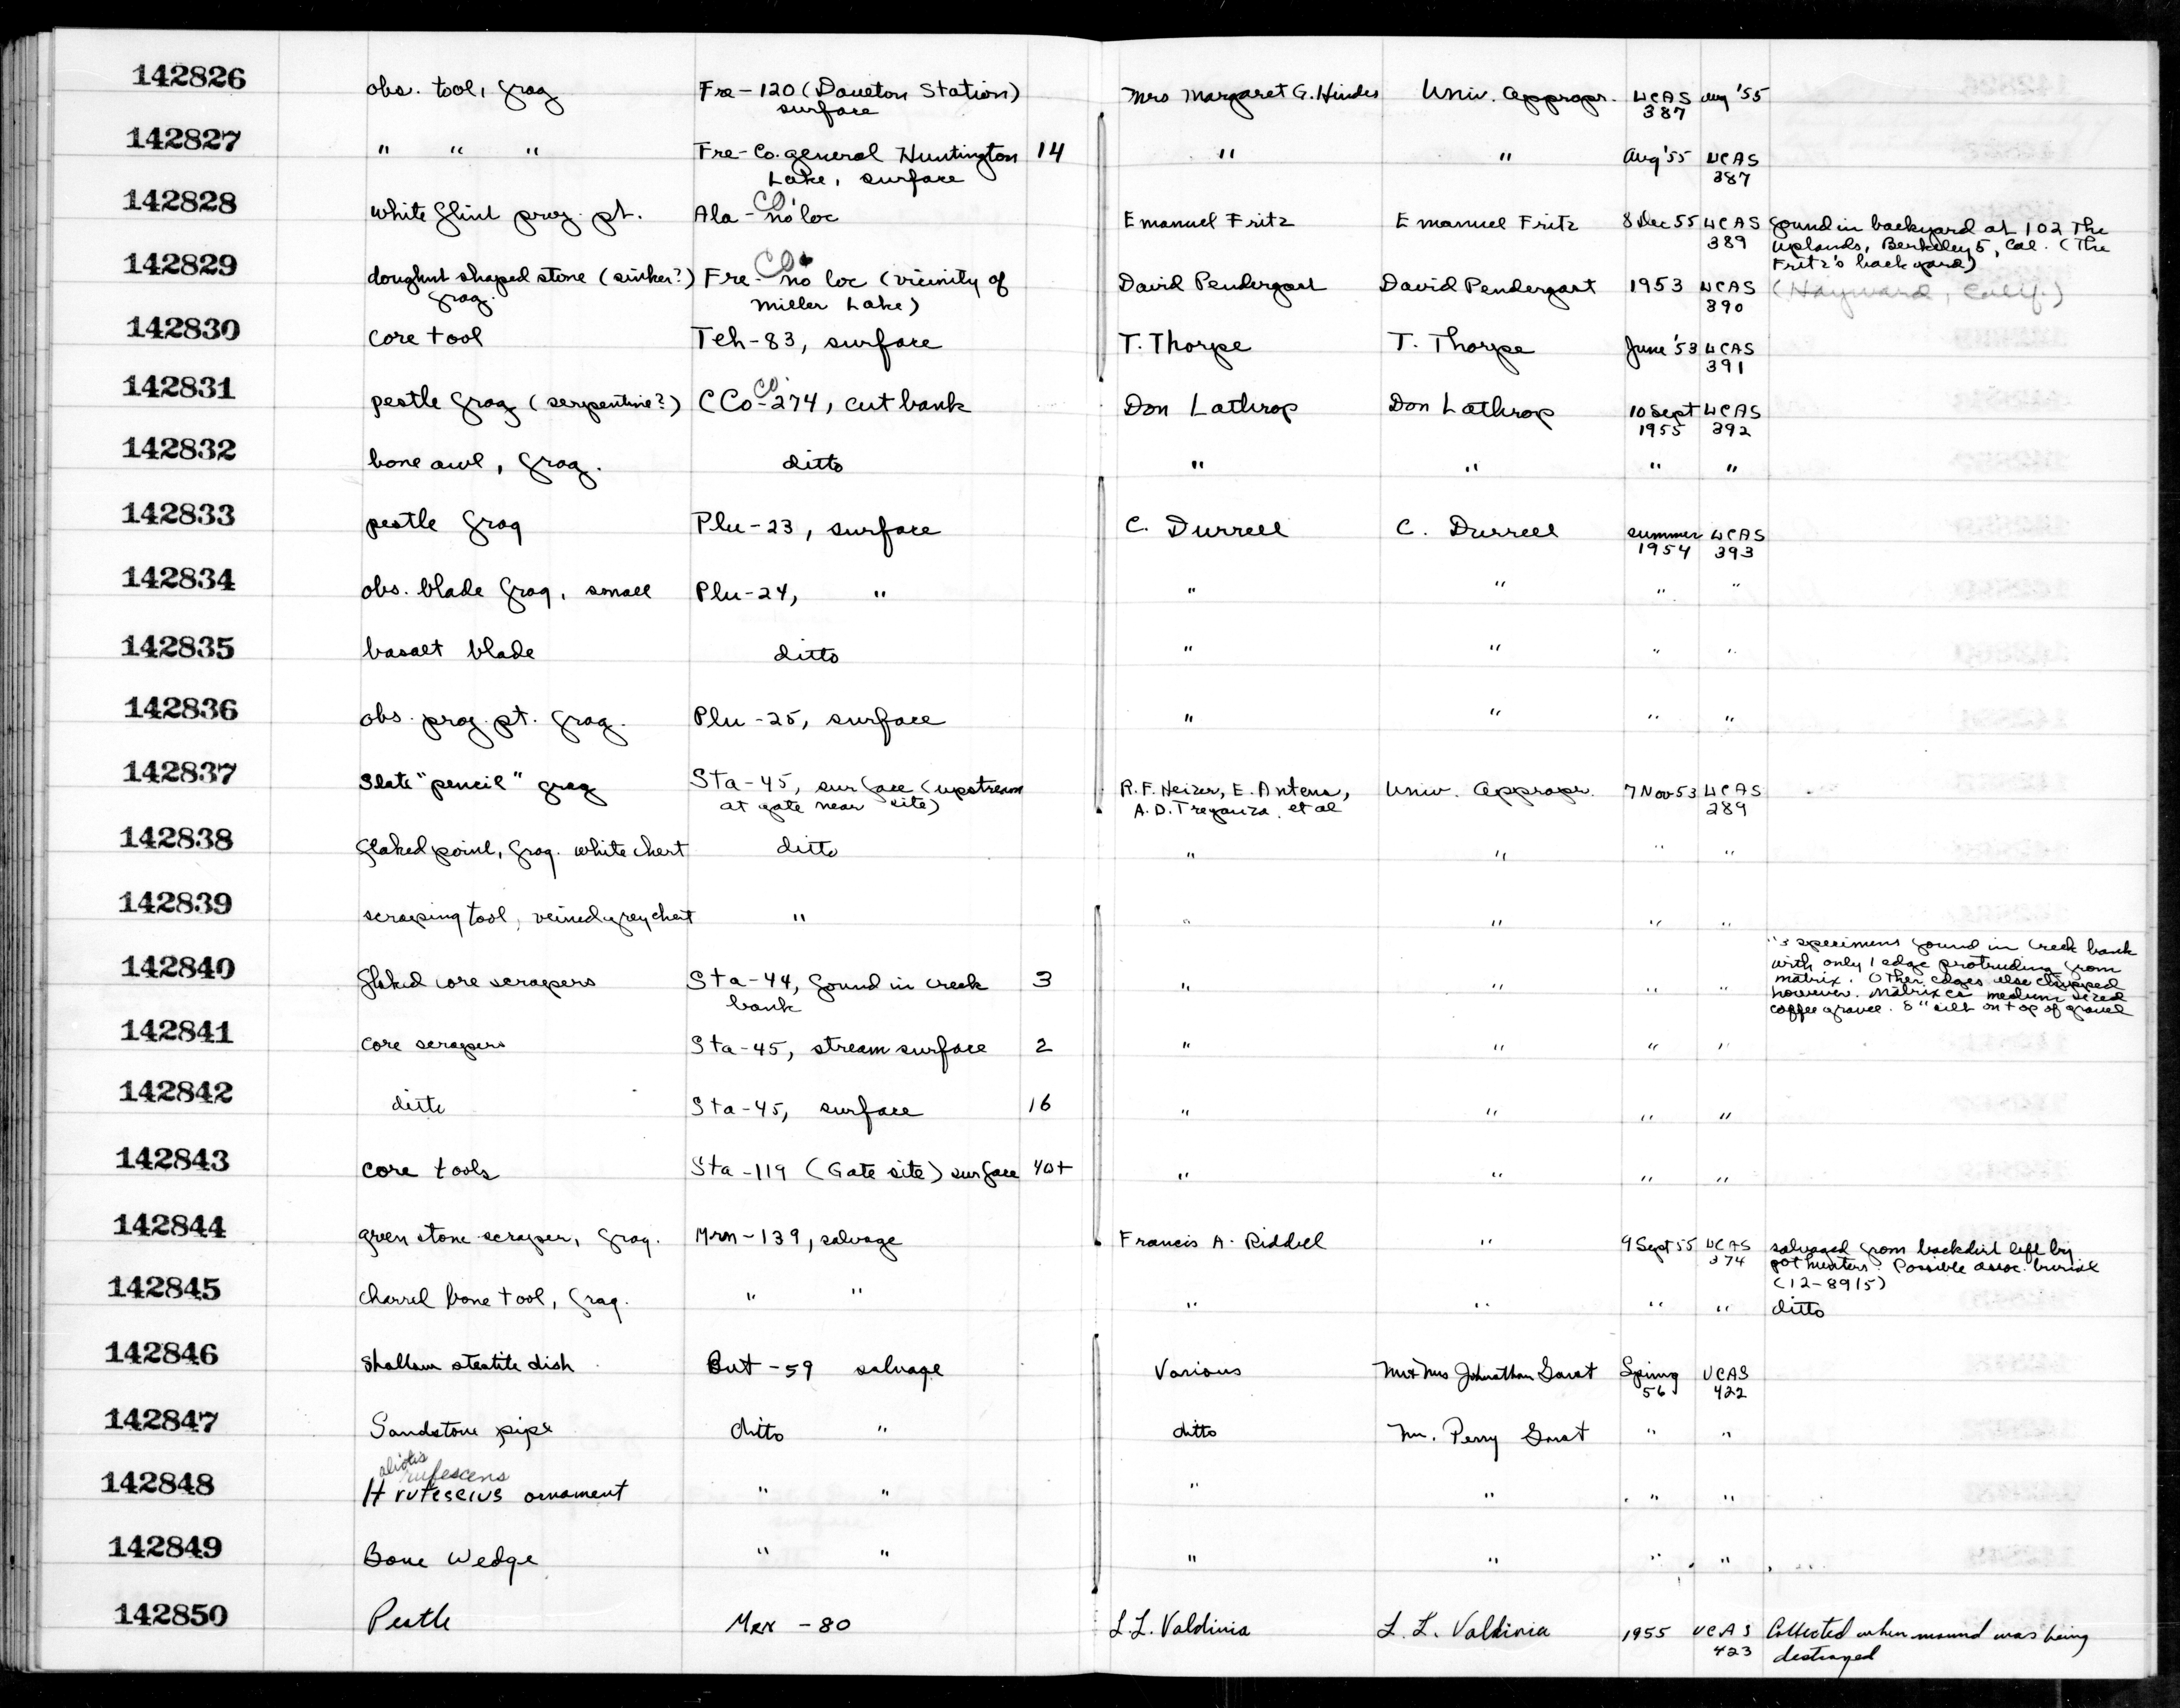 142826 obs. tool, frag Fre-120 (Dauelton Station) Mrs Margaret G. Hindes Univ. Appropr. UCAS Aug '55
surface 387
142827 " " " Fre-Co. general Huntington 14 " " Aug '55 UCAS
Lake, surface 387
142828 white flint proj. pt. Ala-CO no loc Emanuel Fritz Emanuel Fritz 8 Dec 55 UCAS found in backyard at 102 The
389 Uplands, Berkeley 5, Cal. (The
Fritz's back yard)
142829 doughnut shaped stone (sinker?) Fre-CO no loc (vicinity of David Pendergast David Pendergast 1953 UCAS (Hayward, Calif.)
frag. Miller Lake) 390
142830 core tool Teh-83, surface T. Thorpe T. Thorpe June '53 UCAS
391
142831 pestle frag (serpentine?) CCo-274, cut bank Don Lathrop Don Lathrop 10 Sept UCAS
1955 392
142832 bone awl, frag. ditto " " " "
142833 pestle frag Plu-23, surface C. Durrell C. Durrell summer UCAS
1954 393
142834 obs. blade frag, small Plu-24, " " " " "
142835 basalt blade ditto " " " "
142836 obs. proj. pt. frag. Plu-25, surface " " " "
142837 Slate "pencil" frag Sta-45, surface (upstream R.F. Heizer, E. Antena, Univ. Appropr. 7 Nov 53 UCAS
at gate near site) A.D. Treganza, et al 289
142838 flaked point, frag. white chert ditto " " " "
142839 scraping tool, veined grey chert " " " " "
142840 flaked core scrapers Sta-44, found in creek 3 " " " " "3 specimens found in creek bank
bank with only 1 edge protruding from
matrix. Other edges also chipped
however. Matrix is medium sized
coffee gravel. 8" silt on top of gravel
142841 core scrapers Sta-45, stream surface 2 " " " "
142842 ditto Sta-45, surface 16 " " " "
142843 core tools Sta-119 (Gate site) surface 40+ " " " "
142844 green stone scraper, frag. Mrn-139, salvage Francis A. Riddell " 9 Sept 55 UCAS salvaged from backdirt left by
374 pot hunters. Possible assoc. burial
(12-8915)
142845 charrel bone tool, frag. " " " " " " ditto
142846 Shallow steatite dish But-59 salvage Various Mr & Mrs Johnathan Smat Spring UCAS
56 422
142847 Sandstone pipe ditto " ditto Mr. Perry Smat " "
aliotis rufescens
142848 H rufescius ornament " " " " " "
142849 Bone Wedge " " " " " "
142850 Pestle Mer -80 L.L. Valdivia L.L. Valdivia 1955 UCAS Collected when mound was being
423 destroyed